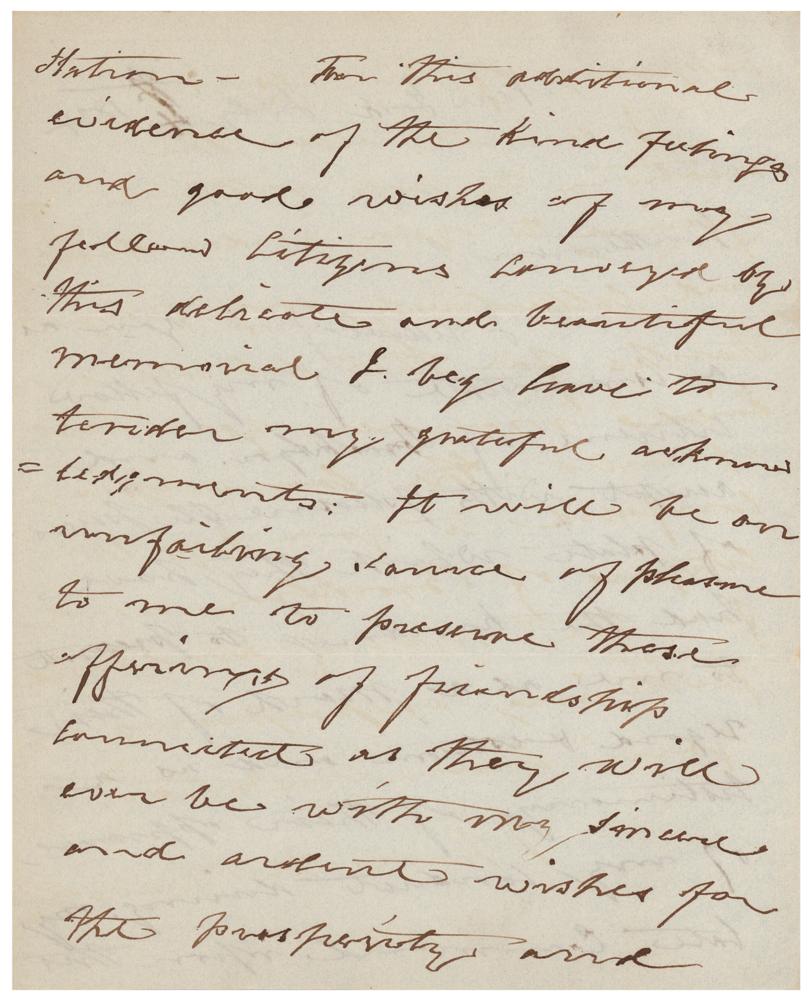 Station – For this additional
evidence of the kind feelings
and good wishes of my
fellow Citizens conveyed by
this delicate and beautiful
memorial I beg leave to
tender my grateful acknow
= ledgments: It will be an
unfailing source of pleasure
to me to preserve these
offerings of friendship
connected as they will
ever be with my sincere
and ardent wishes for
the prosperity and